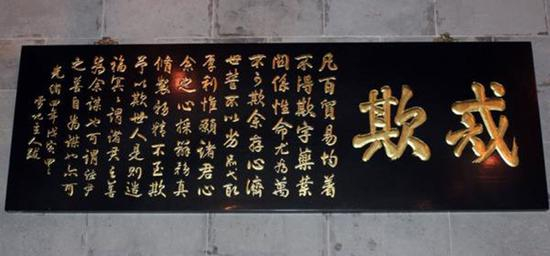 戒欺
凡百貿易均着
不得欺字藥業
關係性命尤為萬
不可欺余存心濟
世誓不以劣品弋取
厚利惟願諸君心
余之心採辦務真
修製務精不至欺
予以欺世人是則造
福冥冥謂諸君之善
為余謀也可謂諸君
之善自為謀也亦可
光緒四年戊寅
雪記主人跋